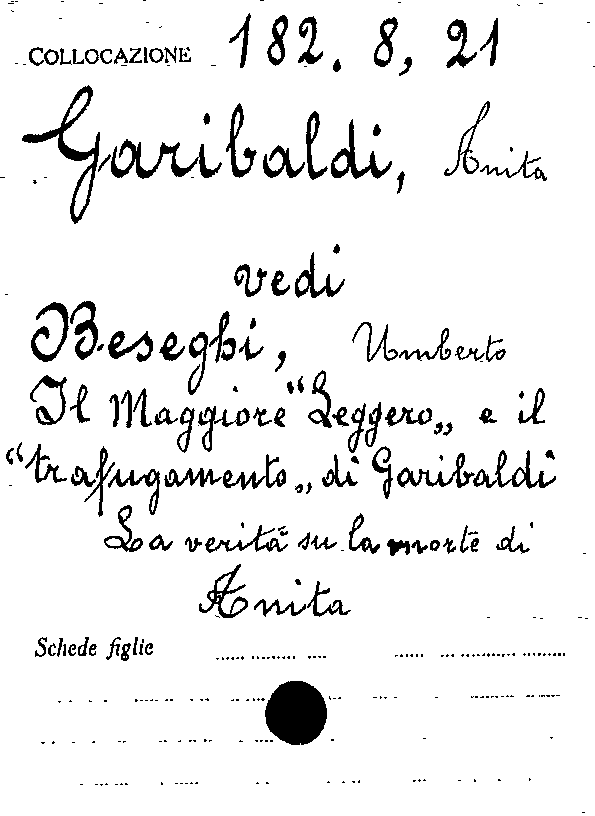 COLLOCAZIONE 182. 8, 21
Garibaldi, Anita
vedi
Beseghi, Umberto
Il Maggiore "Leggero„ e il
"trafugamento„ di Garibaldi
La verità su la morte di
Anita
Schede figlie